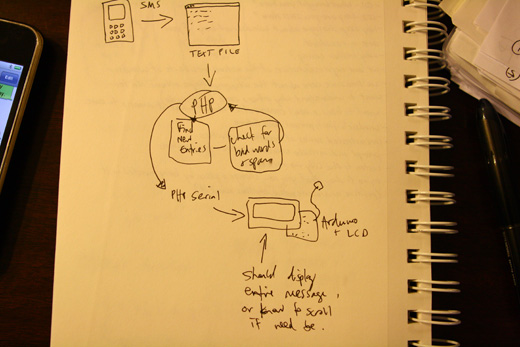 SMS
TEXT FILE
PHP
Find
New
Entries
Check for
bad words
or spam
PHP Serial
Arduino
+ LCD
Should display
entire message,
or know to scroll
if need be.
Edit